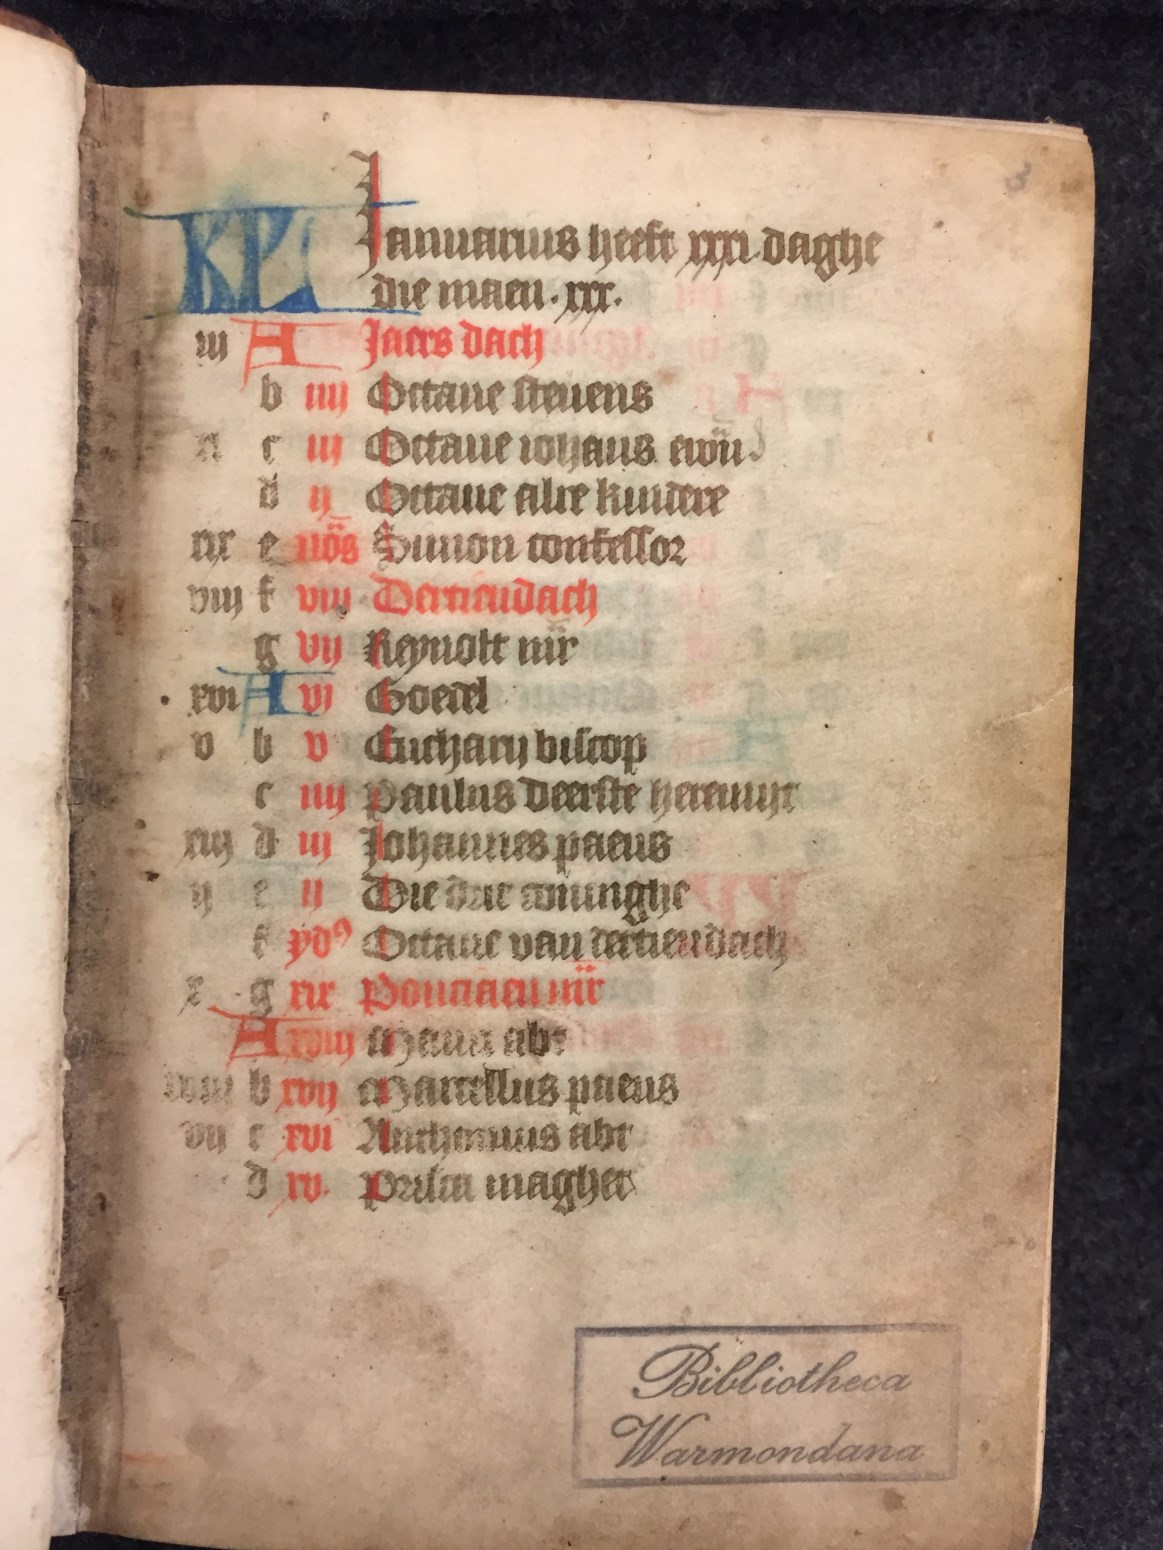 3
KL Januarius heeft xxxi daghe
die maen . xxx.
iij A Jaers dach
b iiij Octaue steuens
c iij Octaue iohans ewā
d ij Octaue alre kindere
xix e nōs Simon confessor
viij f viij Dertiendach
g vij Reynolt mr̄
xvi A vi Goedel
v b v Eucharij biscop
c iiij Paulus deerste heremijt
xiij d iij Johannes paeus
ij e ij Die drie coninghe
f ydꝰ Octaue van dertiendach
x g xix Ponciaen mr̄
A xviij Maur abt
xviij b xvij Marcellus paeus
vij c xvi Anthonius abt
d xv. Prisca maghet
Bibliotheca
Warmondana